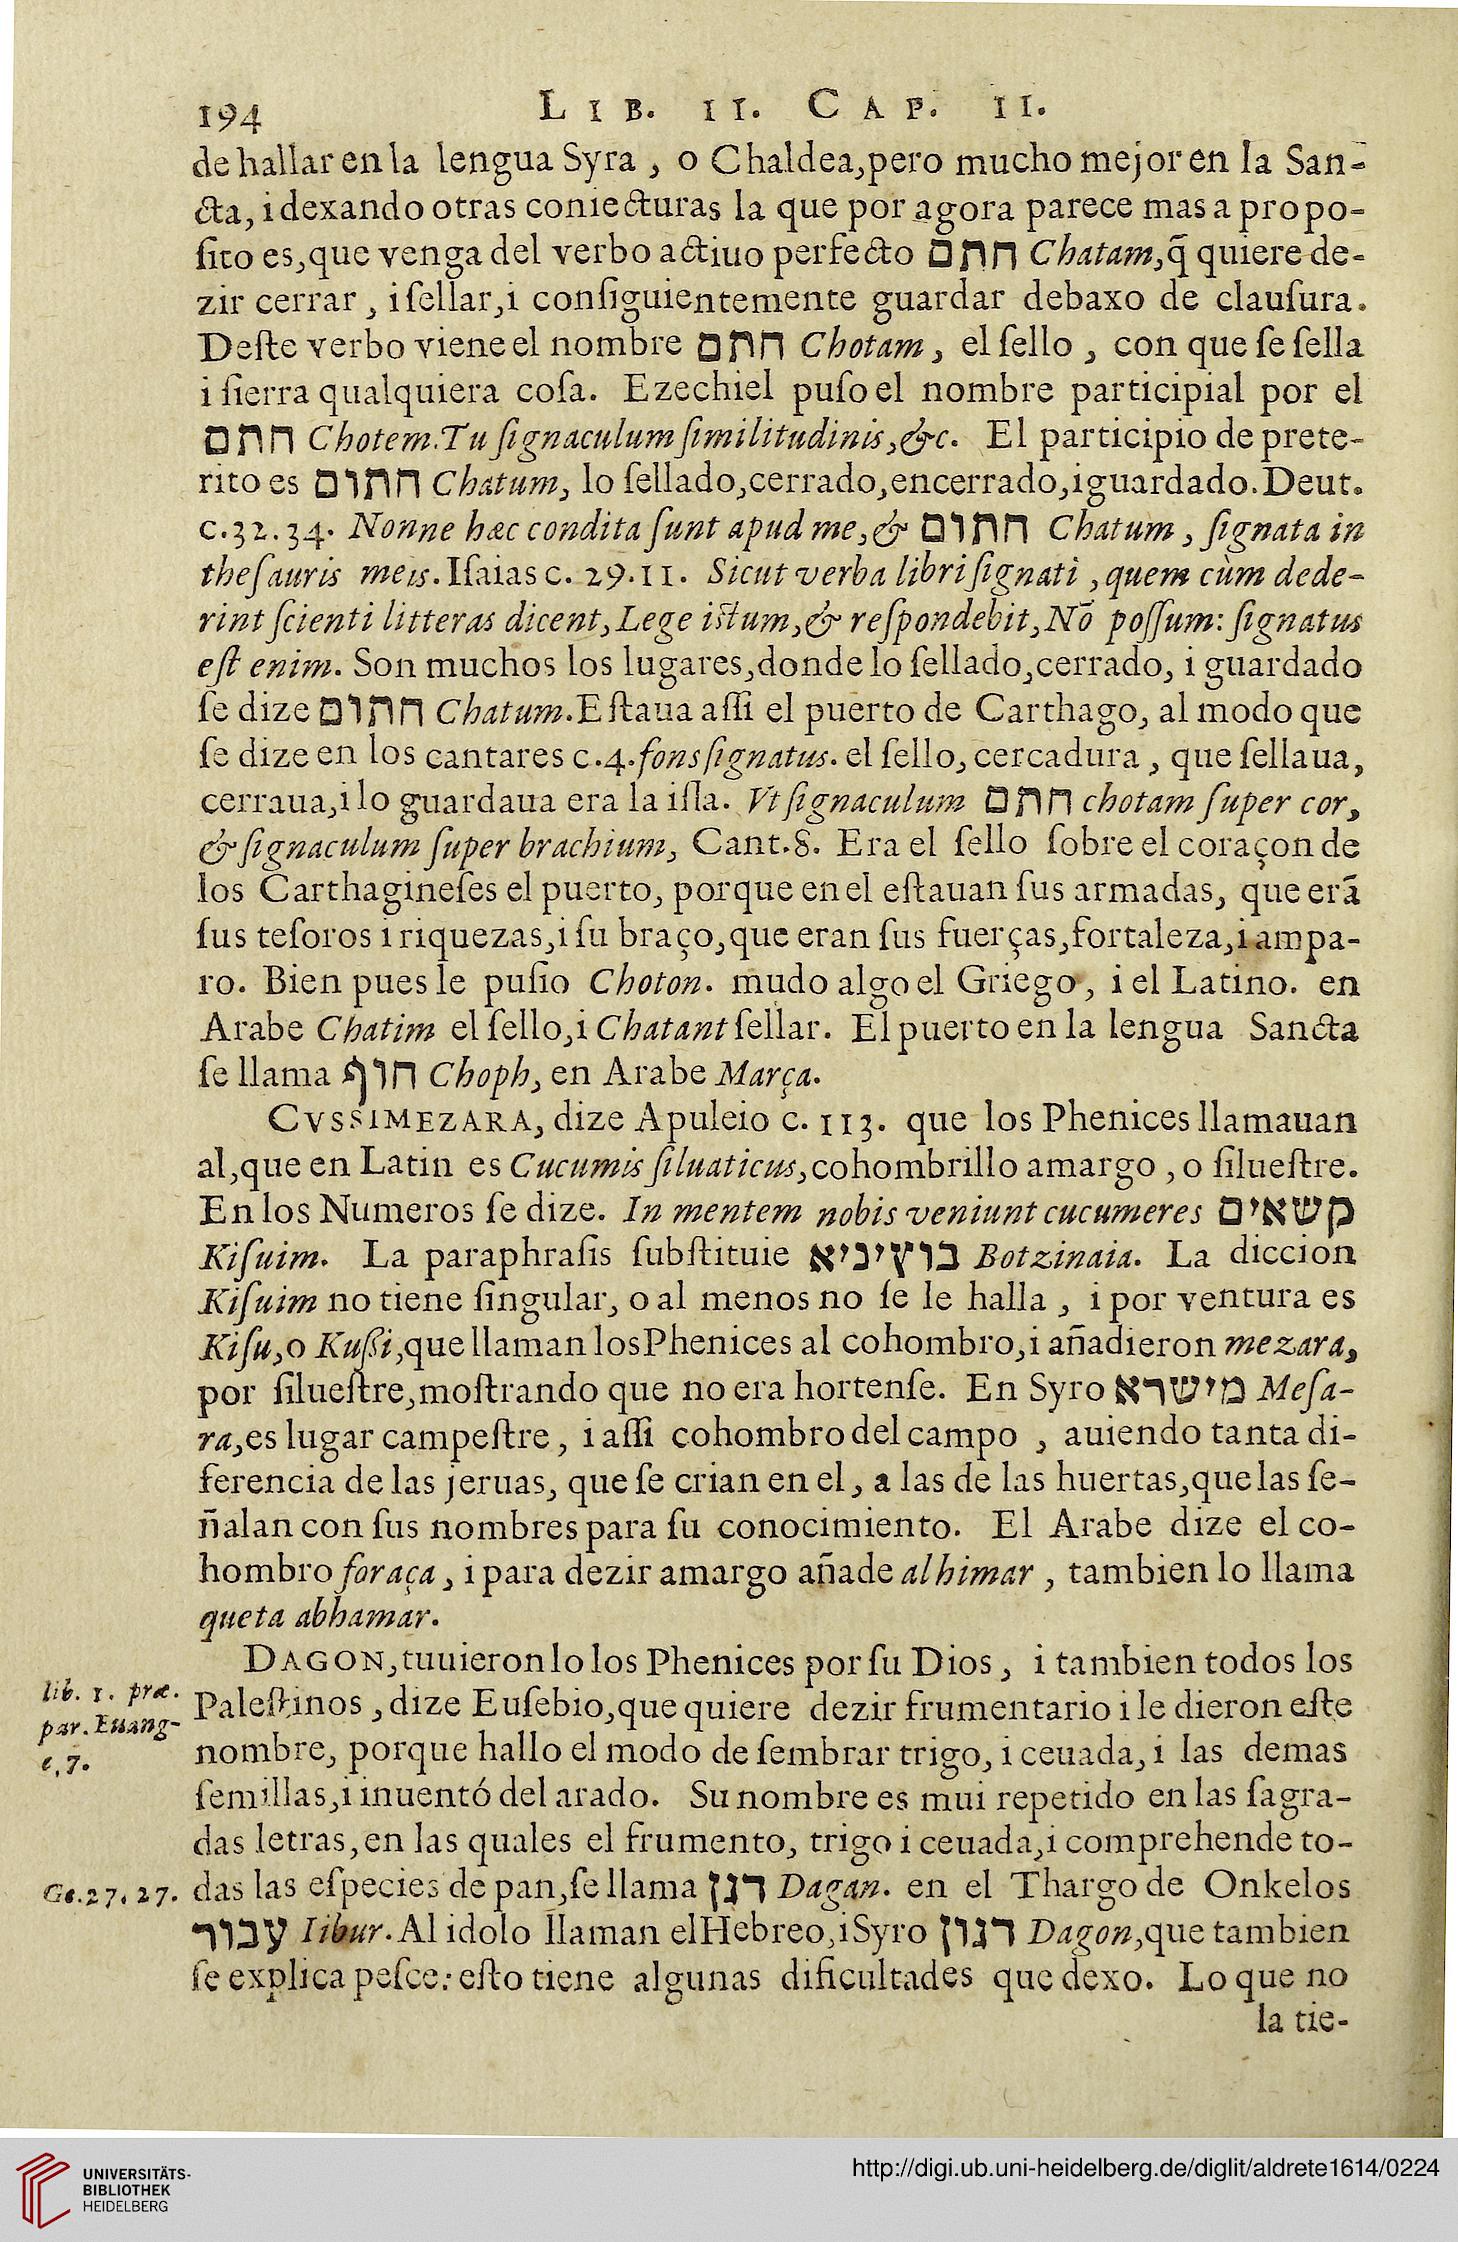 194 LIB. II. CAP. II.
de hallar en la lengua Syra , o Chaldea,pero mucho mejor en la San-
cta, i dexando otras coniecturas la que por agora parece mas a propo-
ſito es,que venga del verbo actiuo perfecto חתם Chatam,q̃ quiere de-
zir cerrar , i ſellar,i conſiguientemente guardar debaxo de clauſura.
Deſte verbo viene el nombre חתם Chotam , el ſello , con que ſe ſella
i ſierra qualquiera coſa. Ezechiel puſo el nombre participial por el
חתם Chotem.Tu ſignaculum ſimilitudinis,&c. El participio de prete-
rito es חתום Chatum, lo ſellado,cerrado,encerrado,i guardado.Deut.
c.32.34. Nonne hæc condita ſunt apud me,& חתום Chatum , ſignata in
theſauris meis. Iſaias c. 29.11. Sicut verba libri ſignati , quem cùm dede-
rint ſcienti litteras dicent, Lege iſtum,& reſpondebit,Nõ poſſum: ſignatus
eſt enim. Son muchos los lugares,donde lo ſellado,cerrado, i guardado
ſe dize חתום Chatum.Eſtaua aſſi el puerto de Carthago, al modo que
ſe dize en los cantares c.4.fons ſignatus. el ſello, cercadura , que ſellaua,
cerraua,i lo guardaua era la iſla. Vt ſignaculum חתם chotam ſuper cor,
& ſignaculum ſuper brachium, Cant.8. Era el ſello ſobre el coraçon de
los Carthagineſes el puerto, porque en el eſtauan ſus armadas, que erã
ſus teſoros i riquezas,i ſu braço,que eran ſus fuerças,fortaleza,i ampa-
ro. Bien pues le puſio Choton. mudo algo el Griego , i el Latino. en
Arabe Chatim el ſello,i Chatant ſellar. El puerto en la lengua Sancta
ſe llama חוף Choph, en Arabe Març̧a.
CVSSIMEZARA, dize Apuleio c. 113. que los Phenices llamauan
al,que en Latin es Cucumis ſiluaticus,cohombrillo amargo , o ſilueſtre.
En los Numeros ſe dize. In mentem nobis veniunt cucumeres קשאים
Kiſuim. La paraphraſis ſubſtituie בוציניא Botzinaia. La diccion
Kiſuim no tiene ſingular, o al menos no ſe le halla , i por ventura es
Kiſu,o Kuſsi,que llaman los Phenices al cohombro,i añadieron mezara,
por ſilueſtre,moſtrando que no era hortenſe. En Syro מישרא Meſa-
ra,es lugar campeſtre , i aſſi cohombro del campo , auiendo tanta di-
ferencia de las jeruas, que ſe crian en el , a las de las huertas,que las ſe-
ñalan con ſus nombres para ſu conocimiento. El Arabe dize el co-
hombro foraça , i para dezir amargo añade alhimar , tambien lo llama
queta abhamar.
DAGON,tuuieronlo los Phenices por ſu Dios , i tambien todos los
lib. 1. præ.
par. Euang-
c.7.
Paleſtinos , dize Euſebio,que quiere dezir frumentario i le dieron eſte
nombre, porque hallo el modo de ſembrar trigo, i ceuada, i las demas
ſemillas,i inuentó del arado. Su nombre es mui repetido en las ſagra-
das letras,en las quales el frumento, trigo i ceuada,i comprehende to-
Ge.27.27.
das las eſpecies de pan,ſe llama דגן Dagan. en el Thargo de Onkelos
עבור Iibur. Al idolo llaman el Hebreo,i Syro דגון Dagon,que tambien
ſe explica peſce: eſto tiene algunas dificultades que dexo. Lo que no
la tie-
UNIVERSITÄTS-
BIBLIOTHEK
HEIDELBERG
http://digi.ub.uni-heidelberg.de/diglit/aldrete1614/0224